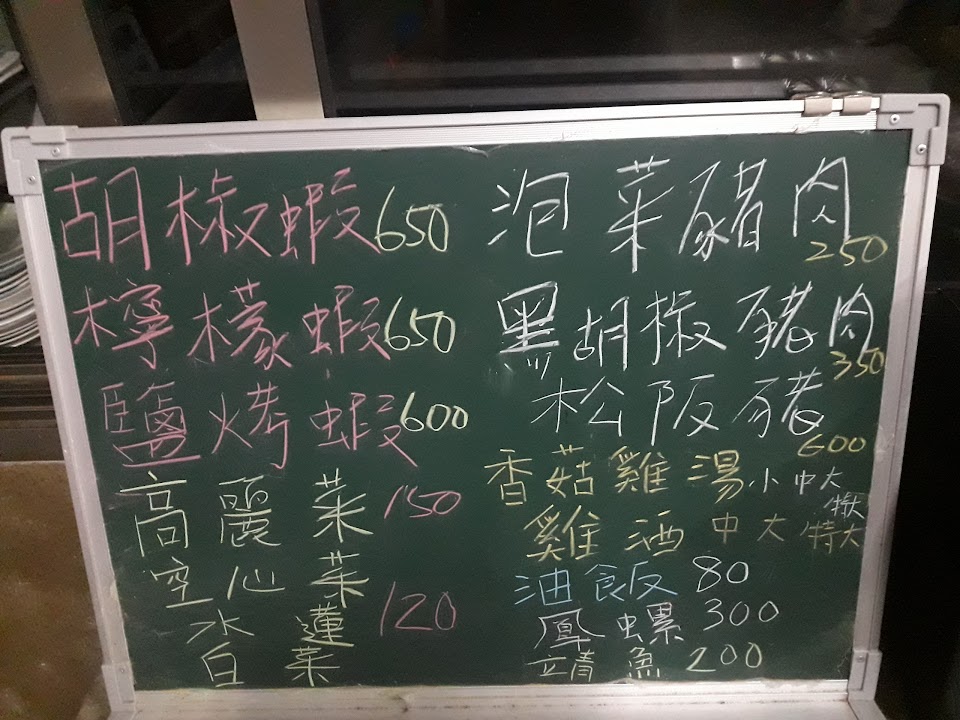 胡椒蝦650
檸檬蝦650
鹽烤蝦600
高麗菜150
空心菜
水蓮120
白菜
泡菜豬肉250
黑胡椒豬肉350
松阪豬600
香菇雞湯小中大特大
雞酒中大特大
油飯80
鳳螺300
魚200